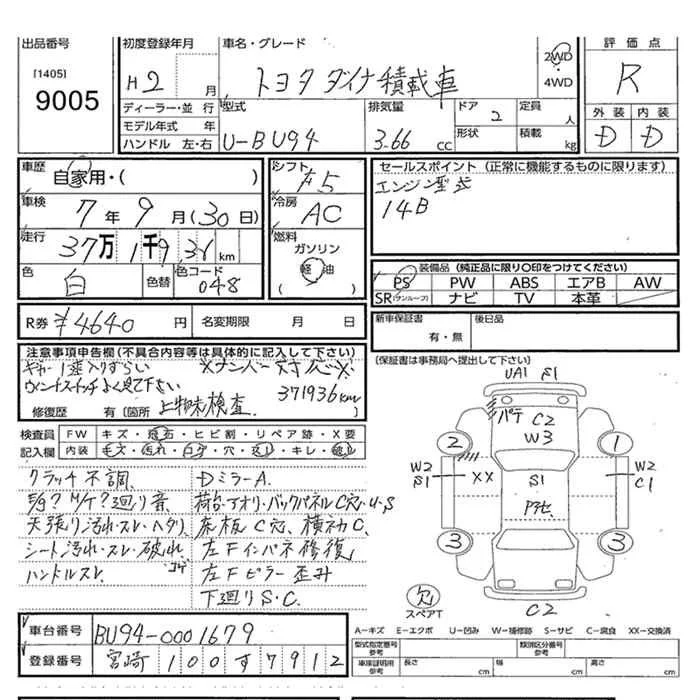 出品番号
[1405]
9005
初度登録年月
H2 月
車名・グレード
トヨタ ダイナ積載車
2WD
4WD
評価点
R
外装 内装
D D
ディーラー・並行
モデル年式 年
ハンドル 左・右
型式
U-BU94
排気量
3.66 cc
ドア 2
形状
定員 人
積載 kg
車歴
自家用・( )
車検
7年9月(30日)
走行
37万1千936km
色
白
色替
色コード
048
シフト
F5
冷房
AC
燃料
ガソリン
軽油
( )
セールスポイント (正常に機能するものに限ります)
エンジン型式
14B
装備品 (純正品に限り○印をつけてください)
PS PW ABS エアB AW
SR(サンルーフ) ナビ TV 本革
R券 ¥4640円 名変期限 月 日
新車保証書
有・無
後日品
(保証書は事務局へ提出して下さい)
注意事項申告欄(不具合内容等は具体的に記入して下さい)
ギヤー1速入りずらい
ウィンドスイッチよく見て下さい
371936km
修復歴 有[箇所 上物未検査
検査員 FW キズ・飛石・ヒビ割・リペア跡・X要
記入欄 内装 キズ・汚れ・穴・キレ
クラッチ不調
E/g? M/T? 廻り音
天張り汚れ・スレ・ヘタリ
シート汚れ・スレ・破れ
コゲ
ハンドルスレ
DミラーA.
荷台・アオリ・バックパネルC穴・U・S
床板C穴、横ネタC.
左Fインパネ修復
左Fピラー歪み
下廻りS・C.
UA1 S1
パテ
C2
W3
2
1
W2
S1
XX
S1
W2
C1
3
3
欠
スペアT
C2
車台番号 BU94-0001679
登録番号 宮崎 100す7912
A=キズ E=エクボ U=凹み W=補修跡 S=サビ C=腐食 XX=交換済
型式指定番号
参考
類別区分番号
参考
車庫証明用
参考
長さ cm
幅 cm
高さ cm